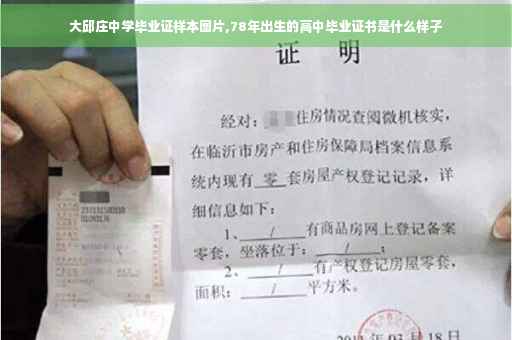 大邱庄中学毕业证样本图片,78年出生的高中毕业证书是什么样子
证 明
经对： 住房情况查阅微机核实，
在临沂市房产和住房保障局档案信息系
统内现有 零 套房屋产权登记记录，详
细信息如下：
1、 / 有商品房网上登记备案
零套，坐落位于： / ；
2、 / 有产权登记房屋零套，
面积： / 平方米。
03 月 18 日